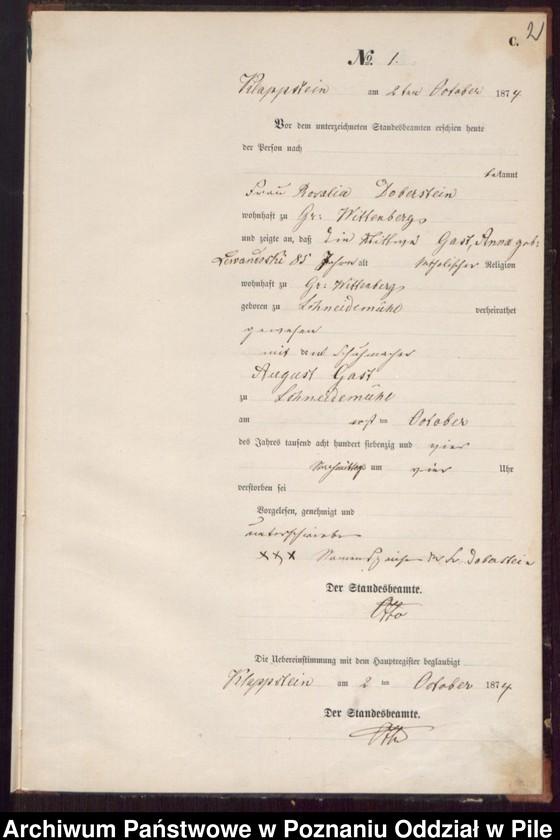 C. 2
No. 1.
Klappstein am 2ten October 1874
Vor dem unterzeichneten Standesbeamten erschien heute
der Person nach
bekannt
Frau Rosalia Doberstein
wohnhaft zu Gr: Wittenberg,
und zeigte an, daß die Wittwe Gast, Anna geb:
85 Jahre alt katholischer Religion
wohnhaft zu Gr: Wittenberg
geboren zu Schneidemühl verheirathet
gewesen
mit dem Schuhmacher
August Gast
zu Schneidemühl
am ten October
des Jahres tausend acht hundert siebenzig und vier
Nachmittag um vier Uhr
verstorben sei
Vorgelesen, genehmigt und
unterschrieben
××× der Fr. Doberstein
Der Standesbeamte.
Otto
Die Uebereinstimmung mit dem Hauptregister beglaubigt
Klappstein am 2 ten October 1874
Der Standesbeamte.
Otto
Archiwum Państwowe w Poznaniu Oddział w Pile